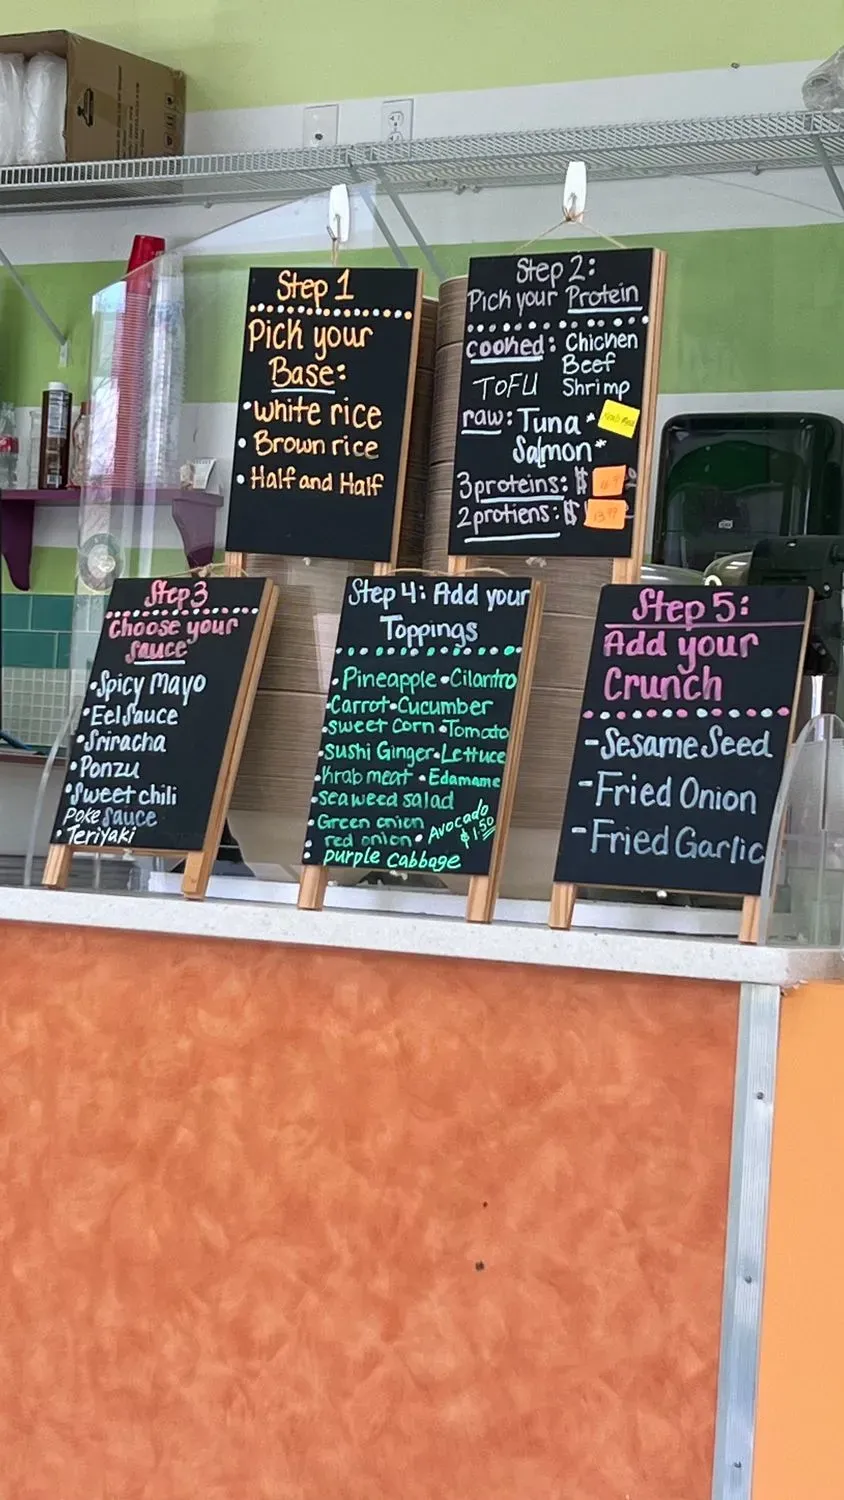 Step 1
Pick your
Base:
• white rice
• Brown rice
• Half and Half
Step 2:
Pick your Protein
cooked: Chicken
Beef
TOFU Shrimp
raw: Tuna *
Salmon *
3 proteins: $
2 protiens: $ 13.99
Step 3
Choose your
sauce
• Spicy mayo
• Eel Sauce
• Sriracha
• Ponzu
• Sweet chili
Poke Sauce
• Teriyaki
Step 4: Add your
Toppings
• Pineapple • Cilantro
• Carrot • Cucumber
• sweet corn • Tomato
• Sushi Ginger • Lettuce
• Krab meat • Edamame
• Seaweed salad
• Green onion
red onion • Avocado $1.50
• purple cabbage
Step 5:
Add your
Crunch
- Sesame Seed
- Fried Onion
- Fried Garlic